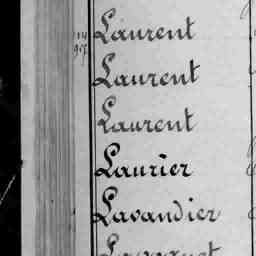 Laurent
Laurent
Laurent
Laurier
Lavandier